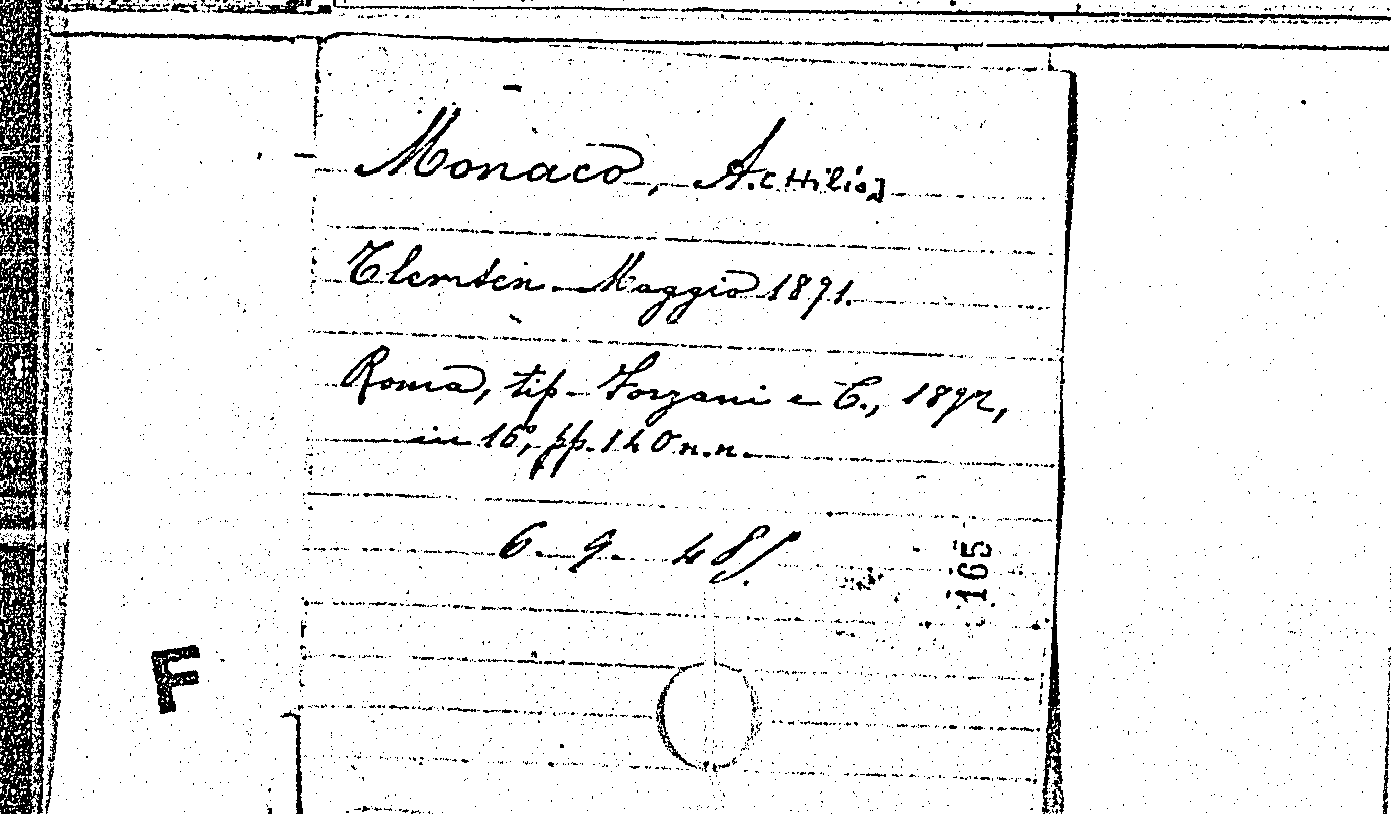 Monaco, A.[ttilio]
Tlemsen - Maggio 1891.
Roma, tip. Forzani e C., 1892,
in 16°, pp. 140 n.n.
6. 9. 485.
165
F